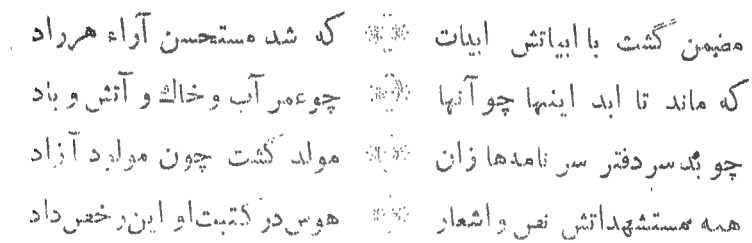 مضمن گشت با ابیاتش ابیات که شد مستحسن آراء هرراد
که ماند تا ابد اینها چو آنها چو عمر آب و خاك و آتش و باد
چو بد سر دفتر سر نامدها زان مولد گشت چون مولود آزاد
همه مستشهداتش نص و اشعار هوس در کتبت او این رخص داد